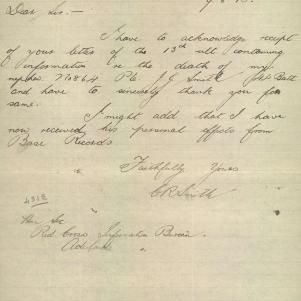 Dear Sir:-
I have to acknowledge receipt
of your letter of the 13th ult containing
information re the death of my
nephew Pte J. G. Smith Batt
and have to sincerely thank you for
same.
I might add that I have
now received his personal effects from
Base Records
Faithfully Yours
C R Smith
Hon Sec
Red Cross Information Bureau
Adelaide